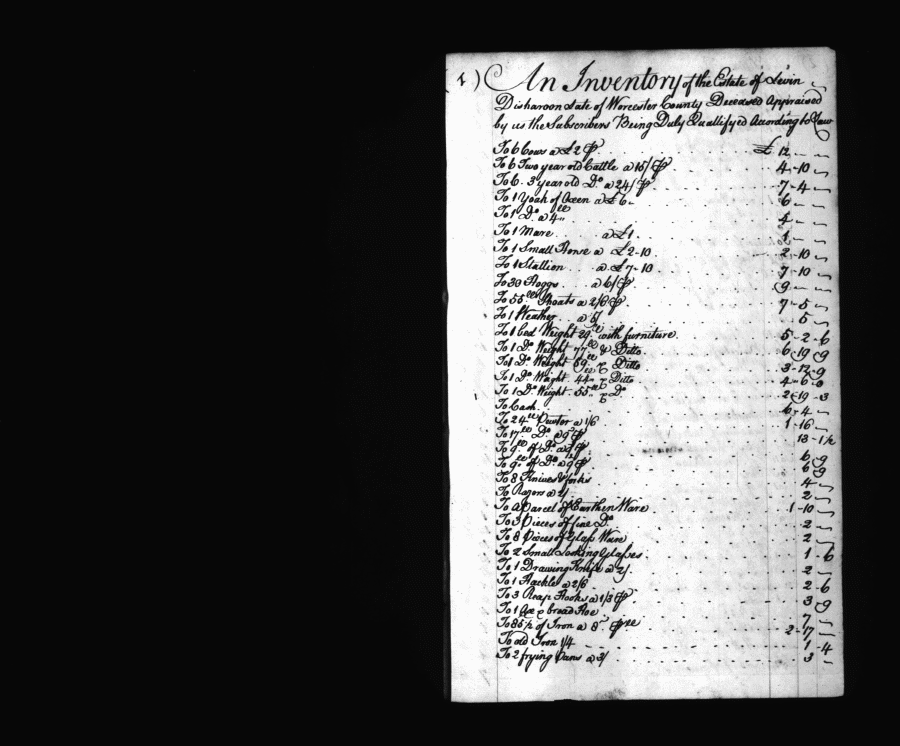 1) An Inventory of the Estate of Levin
Disharoon Late of Worcester County Deceased Appraised
by us the Subscribers Being Duly Quallifyed According to Law
To 6 Cows a £2 ⅌ £ 12 - -
To 6 Two year old Cattle a 15/ ⅌ 4 - 10 -
To 6. 3 year old Do a 24/ ⅌ 7 - 4 -
To 1 Yoak of Oxen a £6 - 6 -
To 1 Do a 4 4 -
To 1 Mare a £1 1 -
To 1 Small Horse a £2-10 2 - 10 -
To 1 Stallion a £7-10 7 - 10 -
To 30 Hoggs a 6/ ⅌ 9 -
To 55 Shoats a 2/6 ⅌ 7 - 5 -
To 1 Weather a 5/ 5 -
To 1 bed Weight 29 with furniture 5 - 2 - 6
To 1 Do Weight 77 & Ditto 6 - 19 - 9
To 1 Do Weight & Ditto 3 - 12 - 9
To 1 Do Weight 44 & Ditto 4 - 6 - 0
To 1 Do Weight 55 & Do 2 - 19 - 3
To Cash 6 - 4 -
To 24 Pewter a 1/6 1 - 16 -
To 17 Do a 9 ⅌ 13 - 1/2
To 9 of Do a 9 ⅌ 6 9
To 9 of Do a 9 ⅌ 6 9
To 8 Knives & forks 4 -
To Razors a 2/ 2 -
To a Parcel of Earthen Ware 1 - 10 -
To 3 Pieces of fine Do 2 -
To 8 Pieces of Glass Ware 2 -
To 2 Small Looking Glasses 1 - 6
To 1 Drawing Knife a 2/ 2 -
To 1 Hackle a 2/6 2 - 6
To 3 Reap Hooks a 1/3 ⅌ 3 9
To 1 Axe & broad Hoe 7 -
To 85 1/2 of Iron a 8 ⅌ 2 - 17 -
To old Iron 1/4 1 - 4
To 2 frying Pans a 3/ 3 -